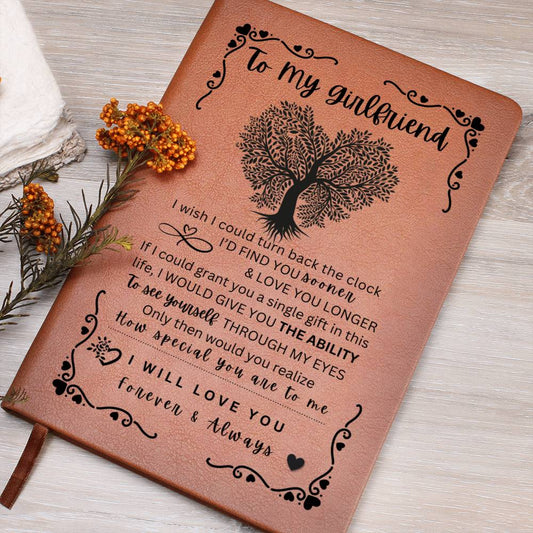 To My Girlfriend
I wish I could turn back the clock
I'D FIND YOU sooner
& LOVE YOU LONGER
If I could grant you a single gift in this
life, I WOULD GIVE YOU THE ABILITY
To see yourself THROUGH MY EYES
Only then would you realize
How special you are to me
I WILL LOVE YOU
Forever & Always